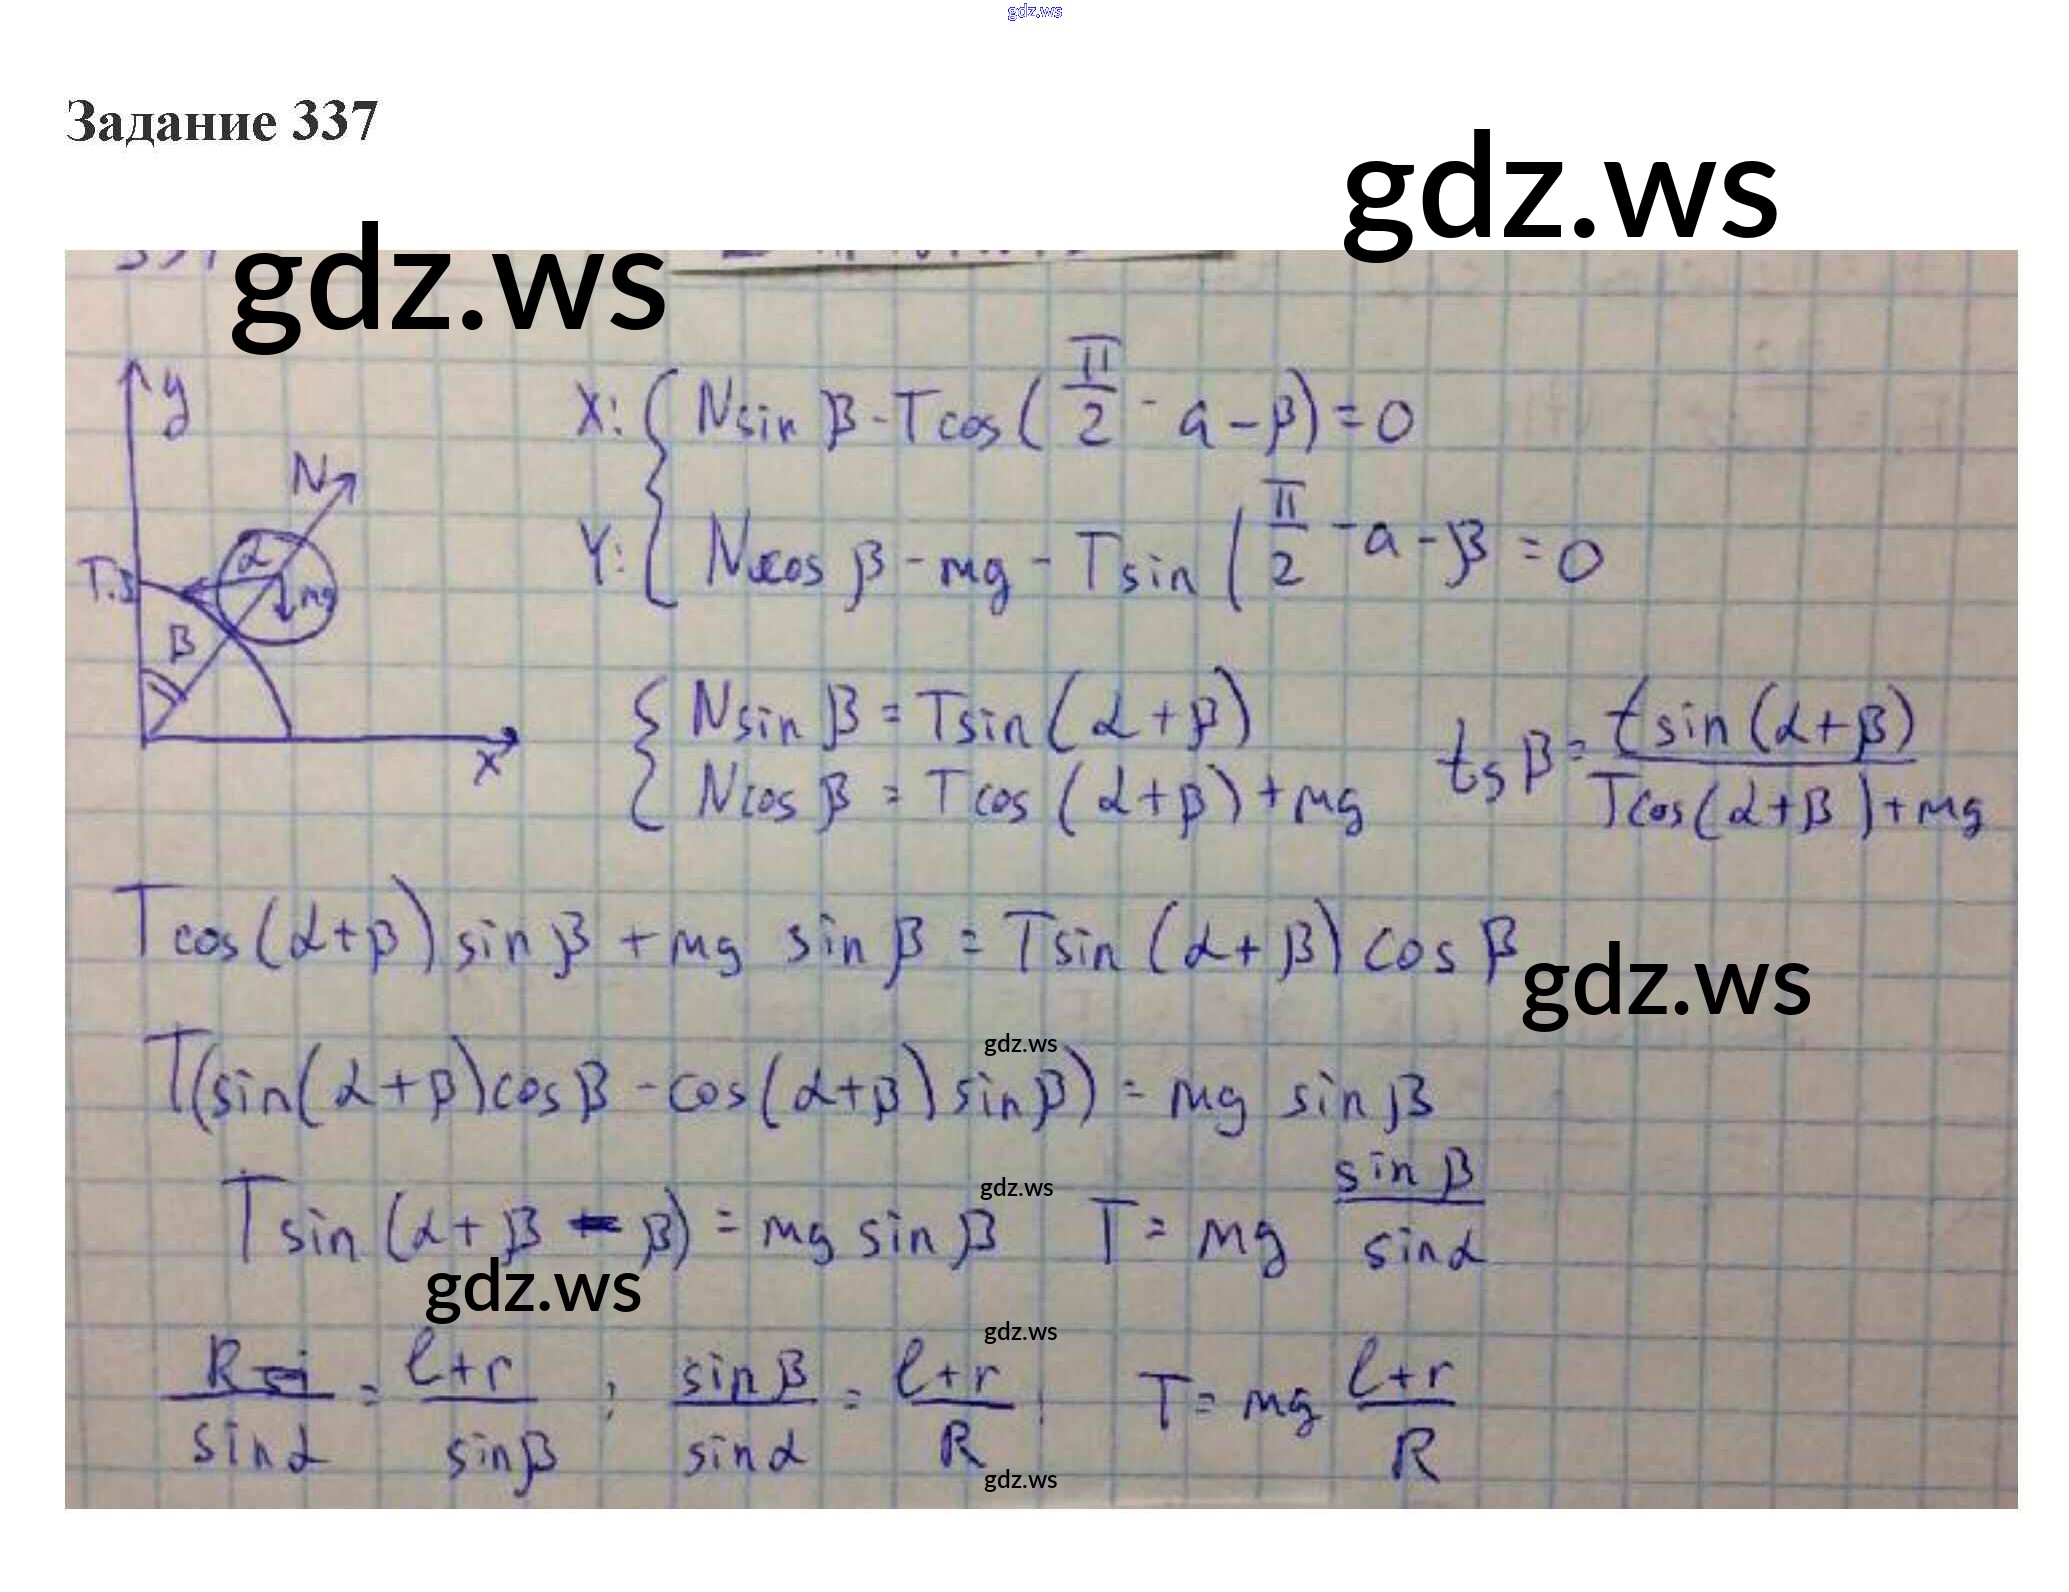 gdz.ws
Задание 337
gdz.ws
gdz.ws
y
N
α
T.B
mg
β
x
X: { N sin β - T cos ( π/2 - a - β ) = 0
Y: { N cos β - mg - T sin ( π/2 - a - β = 0
{ N sin β = T sin (α + β)
N cos β = T cos (α + β) + mg
tg β = t sin (α + β) / T cos (α + β) + mg
T cos (α + β) sin β + mg sin β = T sin (α + β) cos β
gdz.ws
gdz.ws
T (sin (α + β) cos β - cos (α + β) sin β) = mg sin β
gdz.ws
T sin (α + β - β) = mg sin β T = mg sin β / sin α
gdz.ws
gdz.ws
R / sin α = l + r / sin β ; sin β / sin α = l + r / R ; T = mg l + r / R
gdz.ws